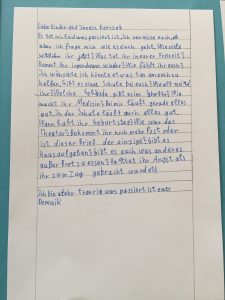 Liebe Kinder und Janusz Korczak
Es tut mir leid was passiert ist. Ich vermisse euch
aber ich frage mich wie es euch geht. Wie viele
seid ihr jetzt? Was tut ihr in eurer Freizeit?
Kommt ihr irgendwann wieder? Wie fühlt ihr euch?
Ich wünschte ich könnte etwas tun um euch zu
helfen. Gibt es eine Schule bei euch? Wie alt seid
ihr? Welche gibt es im Ghetto? Wie
macht ihr Medizin? Bei mir läuft gerade alles
gut. In der Schule läuft auch alles gut.
Wann habt ihr Geburtstag? Wie war das
Theater? Bekommt ihr noch mehr Post oder
ist dieser Brief der einzige? Gibt es
Hausaufgaben? Gibt es auch was anderes
außer Brot zu essen? Hattet ihr Angst als
ihr zum Zug gebracht wurdet?
Ich bin sehr traurig was passiert ist euer
Dominik